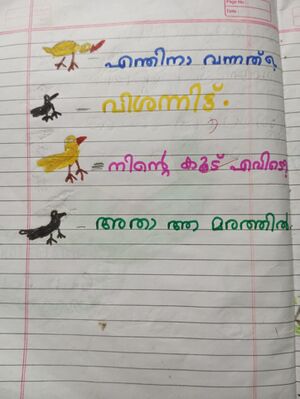 Page No.:
Date :
എന്തിനാ വന്നത്?
- വിശന്നിട്ട്.
= നിന്റെ കൂട് എവിടെ?
- അതാ ആ മരത്തിൽ.